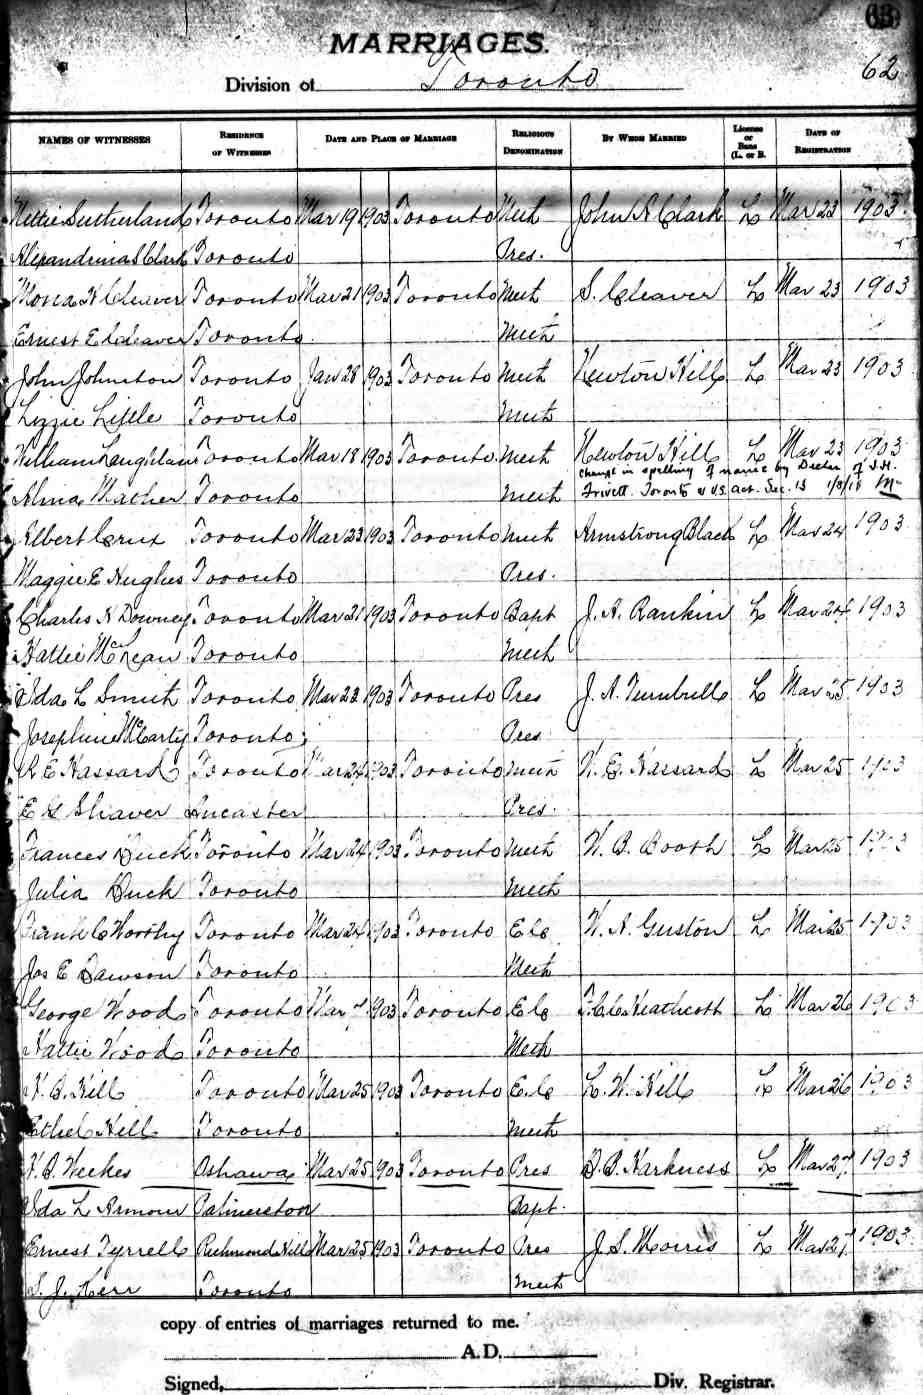 63
MARRIAGES.
62
Division of Toronto
NAMES OF WITNESSES RESIDENCE OF WITNESSES DATE AND PLACE OF MARRIAGE RELIGIOUS DENOMINATION BY WHOM MARRIED License or Bans (L. or B. DATE OF REGISTRATION
Nettie Sutherland Toronto Mar 19 1903 Toronto Meth John A Clark L Mar 23 1903
Alexandrina S Clark Toronto Pres.
Mona H Cleaver Toronto Mar 21 1903 Toronto Meth S. Cleaver L Mar 23 1903
Ernest E Cleaver Toronto Meth
John Johnston Toronto Jan 28 1903 Toronto Meth Newton Hill L Mar 23 1903
Lizzie Little Toronto Meth
William Toronto Mar 18 1903 Toronto Meth Newton Hill L Mar 23 1903
change in spelling of name by Decln of J.H.
Alma Mather Toronto Meth Trivett. Toronto V.S. Act. Sec. 13
Elbert Crux Toronto Mar 23 1903 Toronto Meth Armstrong Black L Mar 24 1903
Maggie E Hughes Toronto Pres.
Charles N Downey Toronto Mar 21 1903 Toronto Bapt J. A. Rankin L Mar 24 1903
Hattie McLean Toronto Meth
Ida L Smith Toronto Mar 23 1903 Toronto Pres J. A. Turnbull L Mar 25 1903
Josephine McCarty Toronto Pres
R E Hassard Toronto Mar 24 1903 Toronto Meth W. E. Hassard L Mar 25 1903
E G Shaver Ancaster Pres.
Frances Duck Toronto Mar 24 1903 Toronto Meth W. B. Booth L Mar 25 1903
Julia Duck Toronto Meth
Frank C Worthy Toronto Mar 24 1903 Toronto E C W. A. Guston L Mar 25 1903
Jos E Dawson Toronto Meth
George Wood Toronto Mar 1903 Toronto E C F. C. C. Heathcott L Mar 26 1903
Hattie Wood Toronto Meth
H. C. Hill Toronto Mar 25 1903 Toronto E. C L. W. Hill L Mar 26 1903
Ethel Hill Toronto Meth
Weekes Oshawa Mar 25 1903 Toronto Pres Harkness L Mar 27 1903
Ida L Armour Palmerston Bapt.
Ernest Tyrrell Richmond Hill Mar 25 1903 Toronto Pres J. S. Morris L Mar 27 1903
S. J. Kerr Toronto Meth
copy of entries of marriages returned to me.
A.D.
Signed, Div. Registrar.